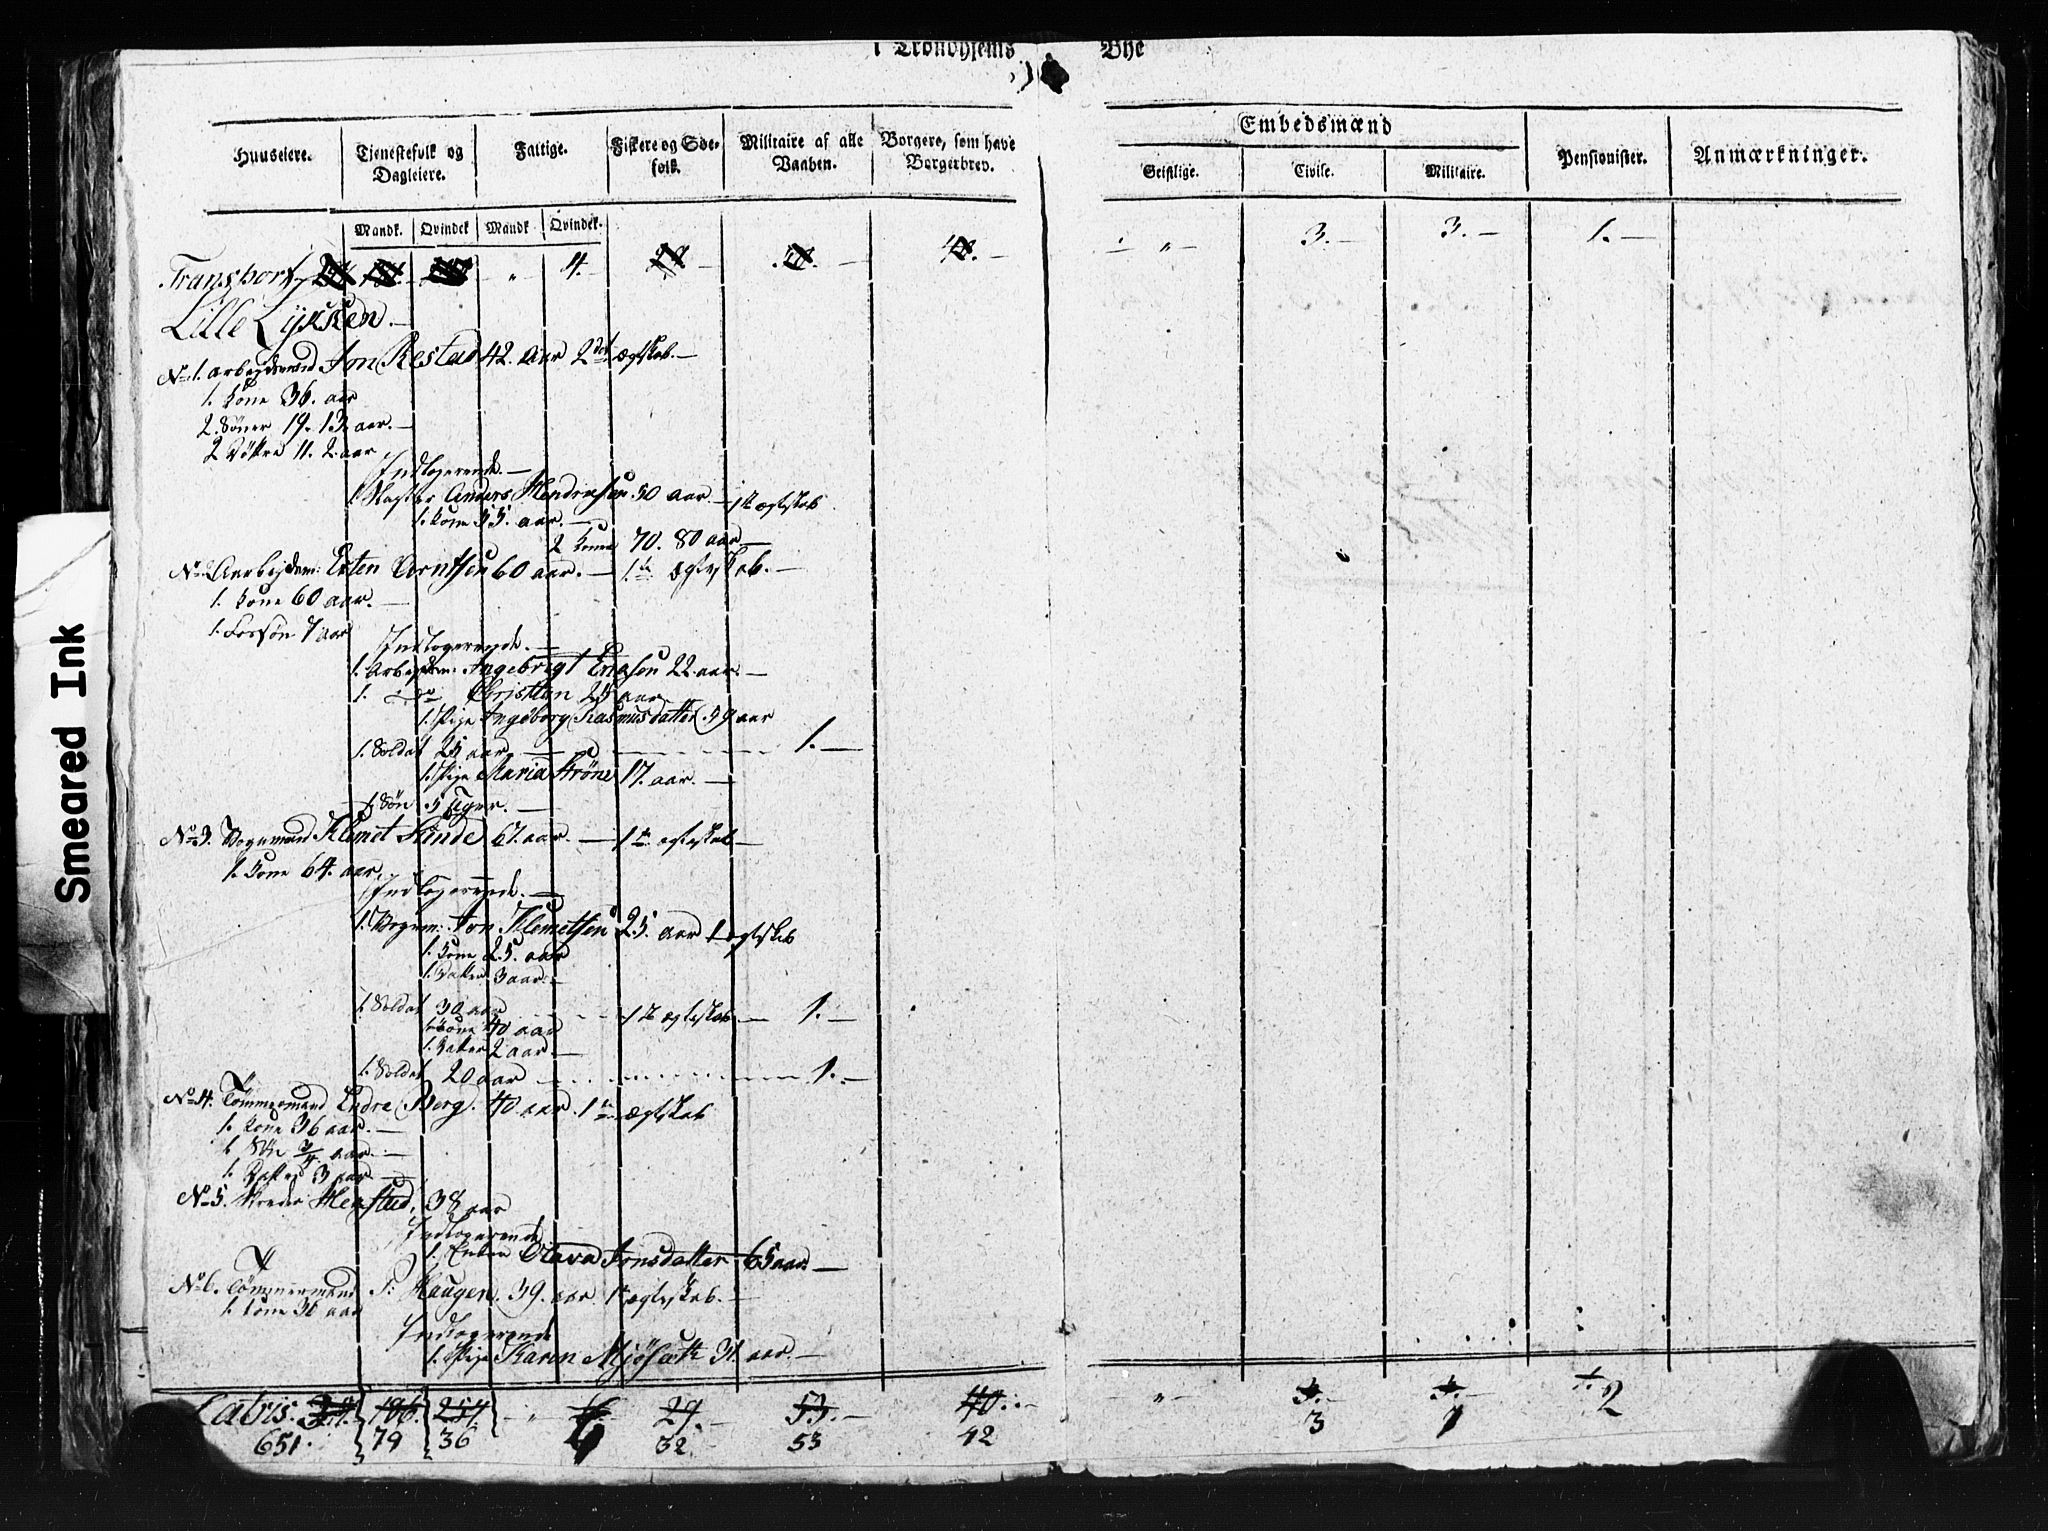 i Trondhjems Bye
Huuseiere. Tjenestefolk og Dagleiere. Fattige. Fiskere og Søefolk. Militaire af alle Vaaben. Borgere, som have Borgerbrev. Embedsmænd Pensionister. Anmærkninger.
Geistlige. Civile. Militaire.
Mandk. Qvindek Mandk Qvindek.
Transport „ 4. „ 3. 3. 1.
Lille Lykken.
No 1. Arbejdsmand Jon Restad 42. Aar 2det ægtskab.
1. Kone 36. aar
2. Sönner 19. 13. aar.
2 Döttre 11. 2. aar
Indlogerende.
1 Anders Hendrichsen 50 aar. 1te ægteskab
1. Kone 55. aar.
2 Koner 70. 80 aar
No 2 Arbejdsm: Esten Arntsen 60 aar. 1te ægteskab.
1. Kone 60 aar.
1. 7 aar
Indlogerende.
1. Arbejdsm: Ingebrigt Ericsen 22 aar.
1. do Christian 25 aar
1. Pige Ingeborg Rasmusdatter 59 aar
1. Soldat 25 aar 1.
1. Pige Maria Ströne 17. aar.
1 Sön 5 Uger.
No 3. Vognmand Klemet Kinde 67. aar. 1te ægteskab
1. Kone 64. aar
Indlogerende.
1. Vognm: Jon Klemetsen 25. aar 1 ægteskab
1. Kone 25. aar
1. Datter 3 aar.
1. Soldat 30 aar 1te ægteskab 1.
1 Kone 40 aar
1. Datter 2 aar.
1. Soldat 20 aar 1.
No 4. Tömmermand Endre Berg. 40 aar 1te ægteskab
1. Kone 36 aar.
1. Sön 3/4 aar.
1. Datter 3 aar
No 5. Henstad. 38 aar
Indlogerende
1. Enke Olava Jonsdatter 65 aar
No 6. Tömmermand Haugen. 39. aar 1te ægteskab.
1. Kone 36 aar
Indlogerende
1. Pige Karen 31. aar.
Latris. 196. 254. „ 29. 53. 40. „ 2
651. 79 36 6 32 53 42 3 7
Smeared Ink